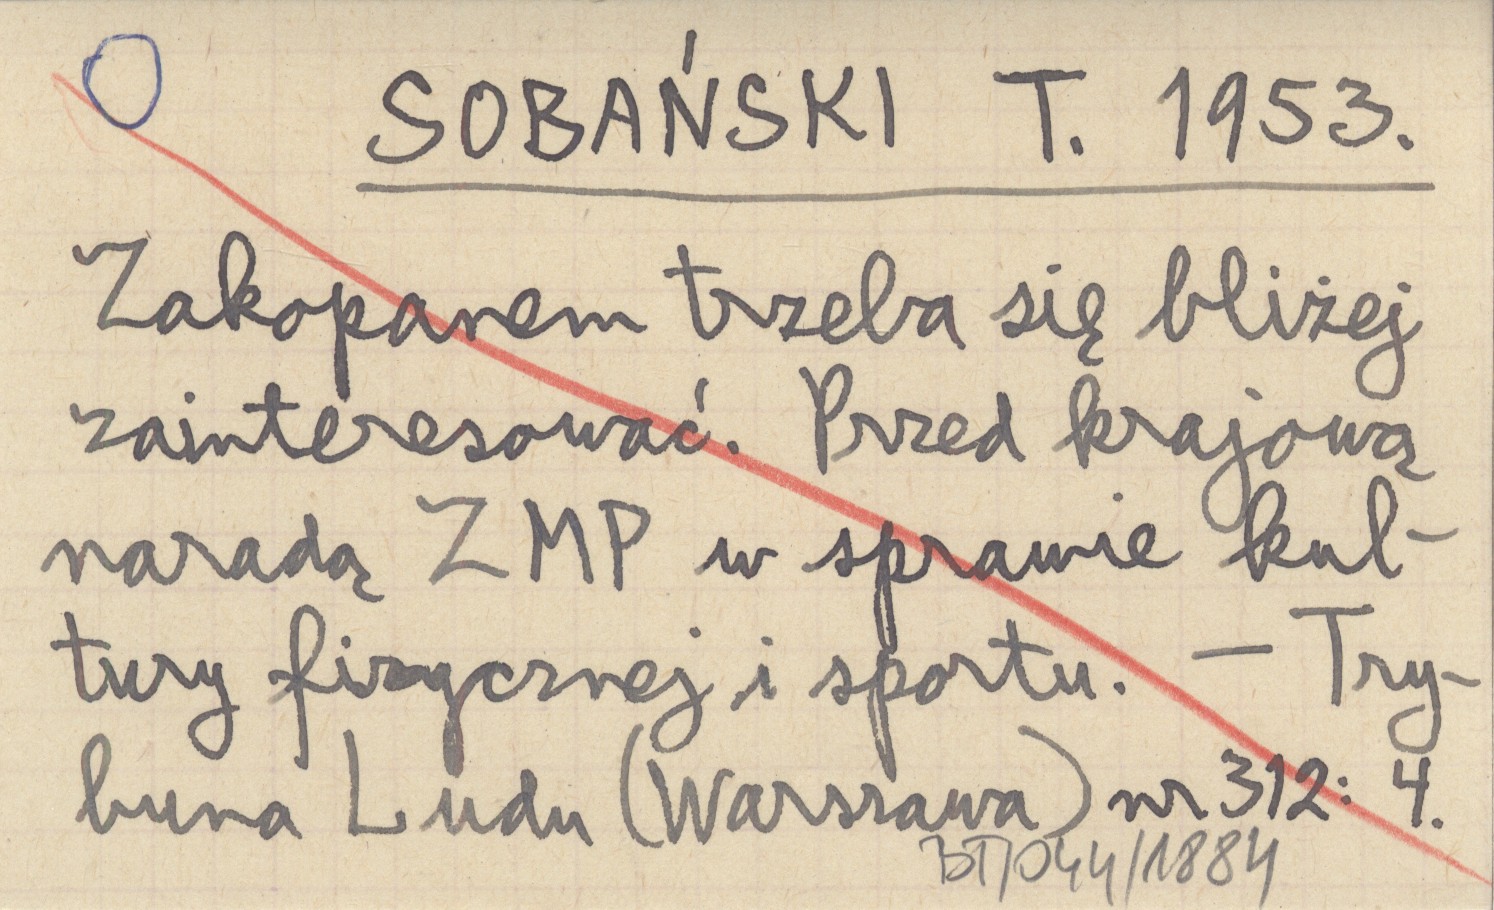 SOBAŃSKI T. 1953.
Zakopanem trzeba się bliżej
zainteresować. Przed krajową
naradą ZMP w sprawie kul-
tury fizycznej i sportu. – Try-
buna Ludu (Warszawa) nr 312: 4.
BTP/044/1884